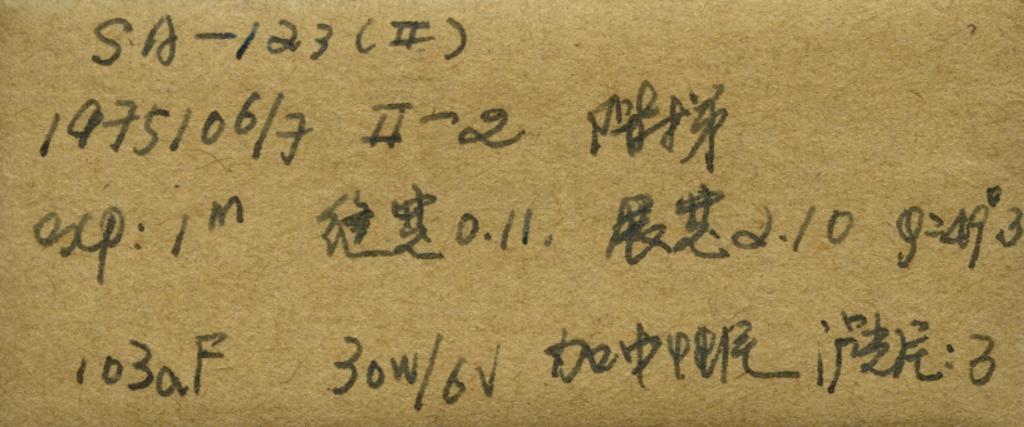 SA-123(Ⅱ)
1975106/7 Ⅱ-2 阶梯
exp: 1m 缝宽0.11. 展宽2.10 φ=49°.3
103aF 30W/6V 加中性 滤光片:3